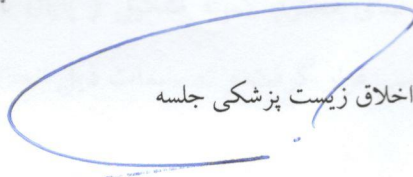 اخلاق زیست پزشکی جلسه